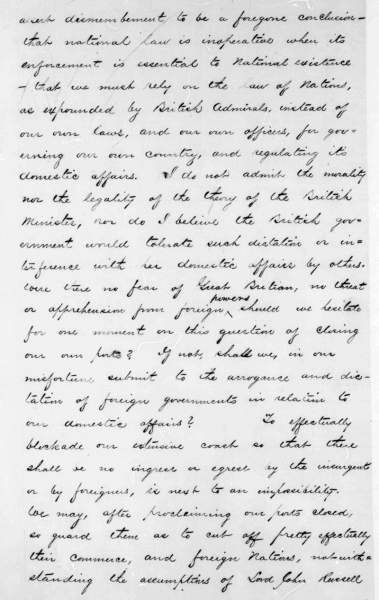 assert dismemberment to be a foregone conclusion -
that national law is inoperative when its
enforcement is essential to National existence
- that we must rely on the law of Nations,
as expounded by British Admirals, instead of
our own laws, and our own officers, for gov-
erning our own country, and regulating its
domestic affairs. I do not admit the morality
nor the legality of the theory of the British
Minister, nor do I believe the British gov-
ernment would tolerate such dictation or in-
terference with her domestic affairs by others.
Were there no fear of Great Britian, no threat
or apprehension from foreign powers should we hesitate
for one moment on this question of closing
our own ports? If not, shall we, in our
misfortune submit to the arrogance and dic-
tation of foreign governments in relation to
our domestic affairs? To effectually
blockade our extensive coast so that there
shall be no ingress or egress by the insurgents
or by foreigners, is next to an impossibility.
We may, after proclaiming our ports closed,
so guard them as to cut off pretty effectually
their commerce, and foreign Nations, notwith-
standing the assumptions of Lord John Russell